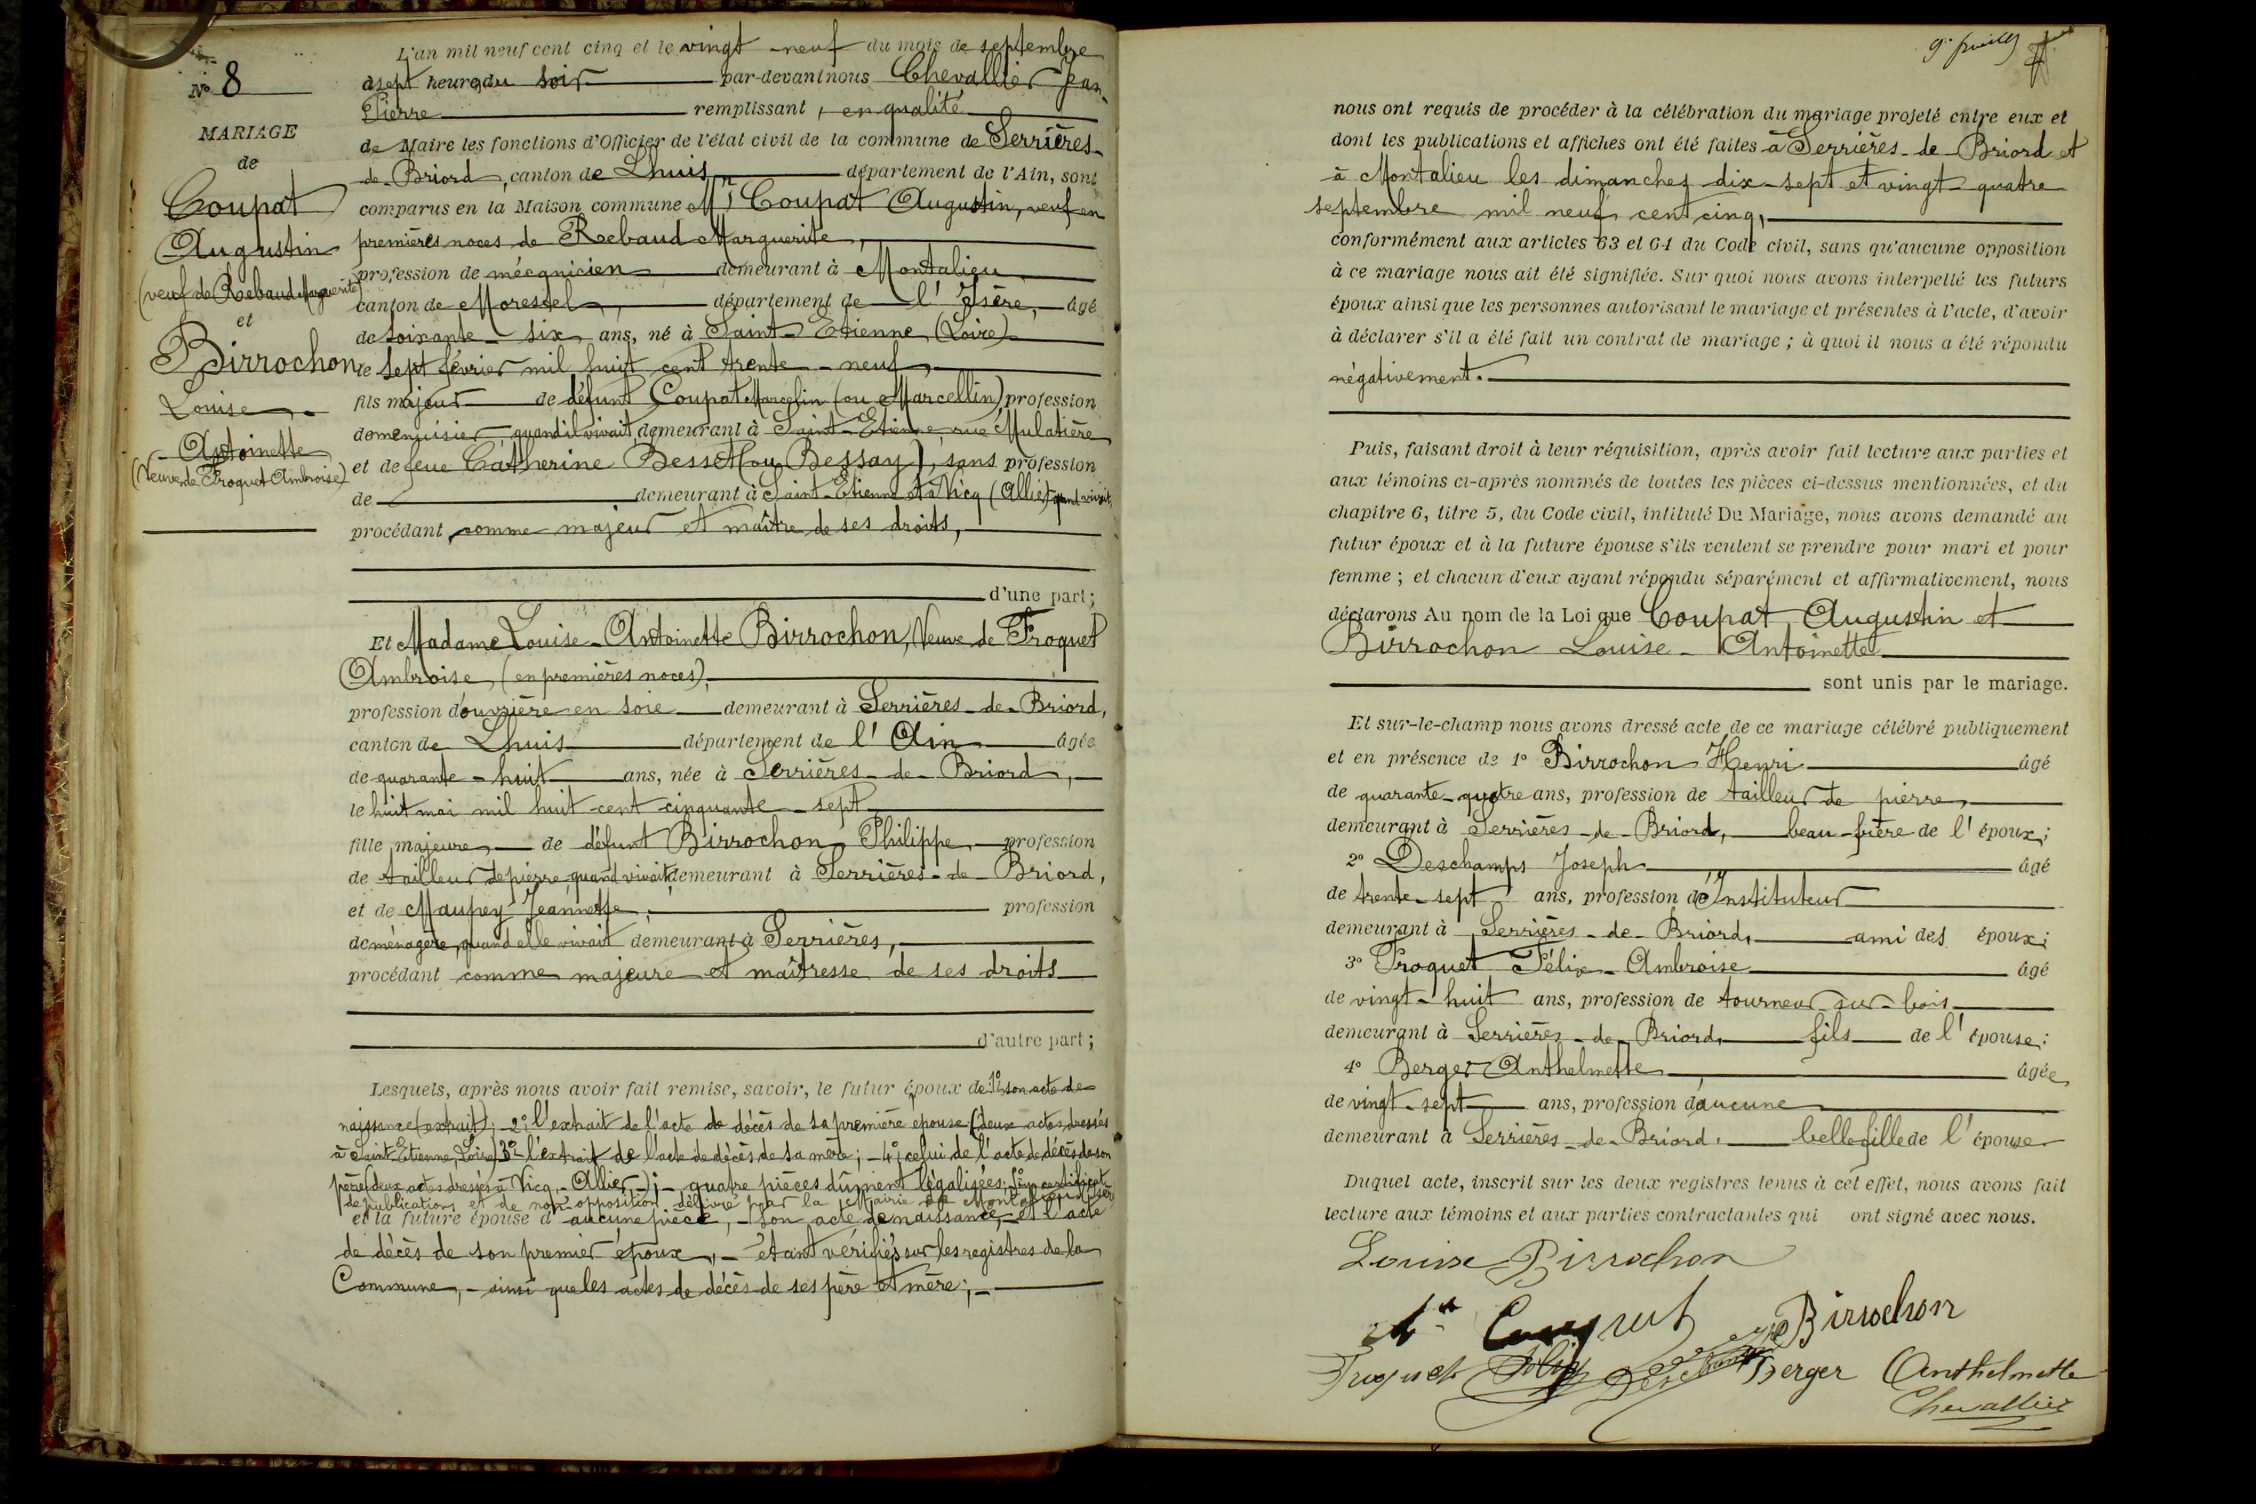 N° 8
MARIAGE
de
Coupat
Augustin
(veuf de Rebaud Marguerite)
et
Birrochon
Louise -
Antoinette
(Veuve de Froquet Ambroise)
L'an mil neuf cent cinq et le vingt-neuf du mois de septembre
à sept heures du soir par-devant nous Chevallier Jean-
Pierre remplissant, en qualité
de Maire les fonctions d'Officier de l'état civil de la commune de Serrières-
de-Briord, canton de Lhuis département de l'Ain, sont
comparus en la Maison commune Mr Coupat Augustin, veuf en
premières noces de Rebaud Marguerite,
profession de mécanicien demeurant à Montalieu
canton de Morestel, département de l'Isère, âgé
de soixante-six ans, né à Saint-Etienne (Loire)
le sept février mil huit cent trente-neuf,
fils majeur de défunt Coupat Marcelin (ou Marcellin) profession
de menuisier quand il vivait demeurant à Saint-Etienne, rue Mulatière
et de feue Catherine Bessett (ou Bessay), sans profession
de demeurant à Saint-Etienne et à Vicq (Allier) quand vivait,
procédant comme majeur et maître de ses droits,
d'une part;
Et Madame Louise-Antoinette Birrochon, Veuve de Froquet
Ambroise, (en premières noces),
profession d'ouvrière en soie demeurant à Serrières-de-Briord,
canton de Lhuis département de l'Ain âgée
de quarante-huit ans, née à Serrières-de-Briord,
le huit mai mil huit cent cinquante-sept
fille majeure, de défunt Birrochon Philippe, profession
de tailleur de pierre quand vivait demeurant à Serrières-de-Briord,
et de Maupey Jeannette, profession
de ménagère, quand elle vivait demeurant à Serrières,
procédant comme majeure et maîtresse de ses droits
d'autre part;
Lesquels, après nous avoir fait remise, savoir, le futur époux de 1° son acte de
naissance (extrait); -2° l'extrait de l'acte de décès de sa première épouse (deux actes dressés
à Saint-Etienne, Loire) 3° l'extrait de l'acte de décès de sa mère; -4° celui de l'acte de décès de son
père (deux actes dressés à Vicq - Allier -); - quatre pièces dûment légalisées; 5° un certificat
de publications et de non-opposition délivré par la Mairie de Montalieu (Isère)
et la future épouse d'aucune pièce, - son acte de naissance, - et l'acte
de décès de son premier époux, - étant vérifiés sur les registres de la
Commune, - ainsi que les actes de décès de ses père et mère; -
nous ont requis de procéder à la célébration du mariage projeté entre eux et
dont les publications et affiches ont été faites à Serrières-de-Briord et
à Montalieu les dimanches dix-sept et vingt-quatre
septembre mil neuf cent cinq,
conformément aux articles 63 et 64 du Code civil, sans qu'aucune opposition
à ce mariage nous ait été signifiée. Sur quoi nous avons interpellé les futurs
époux ainsi que les personnes autorisant le mariage et présentes à l'acte, d'avoir
à déclarer s'il a été fait un contrat de mariage; à quoi il nous a été répondu
négativement.
Puis, faisant droit à leur réquisition, après avoir fait lecture aux parties et
aux témoins ci-après nommés de toutes les pièces ci-dessus mentionnées, et du
chapitre 6, titre 5, du Code civil, intitulé Du Mariage, nous avons demandé au
futur époux et à la future épouse s'ils veulent se prendre pour mari et pour
femme; et chacun d'eux ayant répondu séparément et affirmativement, nous
déclarons Au nom de la Loi que Coupat Augustin et
Birrochon Louise-Antoinette
sont unis par le mariage.
Et sur-le-champ nous avons dressé acte de ce mariage célébré publiquement
et en présence de 1° Birrochon Henri âgé
de quarante-quatre ans, profession de tailleur de pierre,
demeurant à Serrières-de-Briord, beau-frère de l'époux;
2° Deschamps Joseph âgé
de trente-sept ans, profession d'Instituteur
demeurant à Serrières-de-Briord, ami des époux;
3° Froquet Félix-Ambroise âgé
de vingt-huit ans, profession de tourneur-sur-bois
demeurant à Serrières-de-Briord, fils de l'épouse;
4° Berger Anthelmette âgée
de vingt-sept ans, profession d'aucune
demeurant à Serrières-de-Briord, belle fille de l'épouse
Duquel acte, inscrit sur les deux registres tenus à cet effet, nous avons fait
lecture aux témoins et aux parties contractantes qui ont signé avec nous.
Louise Birrochon
Coupat Birrochon
Froquet Félix Deschamps Berger Anthelmette
Chevallier